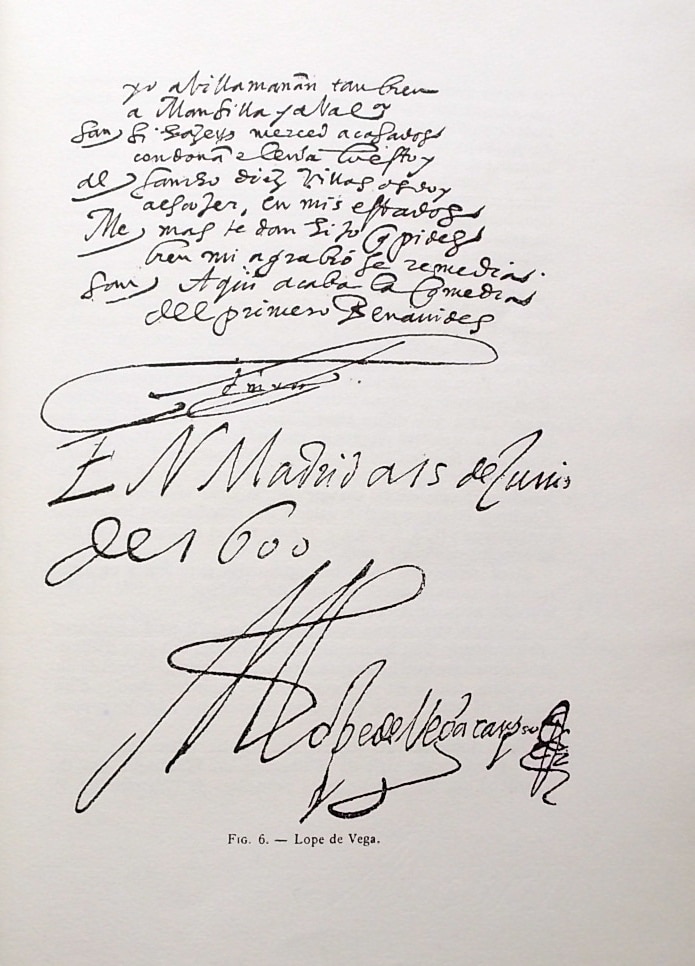 yo a billamañan tambien
a Mansilla y a Val
San
merced acasados
con doña elena
al Sancho diez Villas os doy
a escojer, en mis estados
Me mas te don
pides
bien mi agrabio se remedia.
San Aqui acaba la comedia
del primero Benauides
EN Madrid a 15 de Junio
de 1600
M Lope de Vega carpio
Fig. 6. — Lope de Vega.